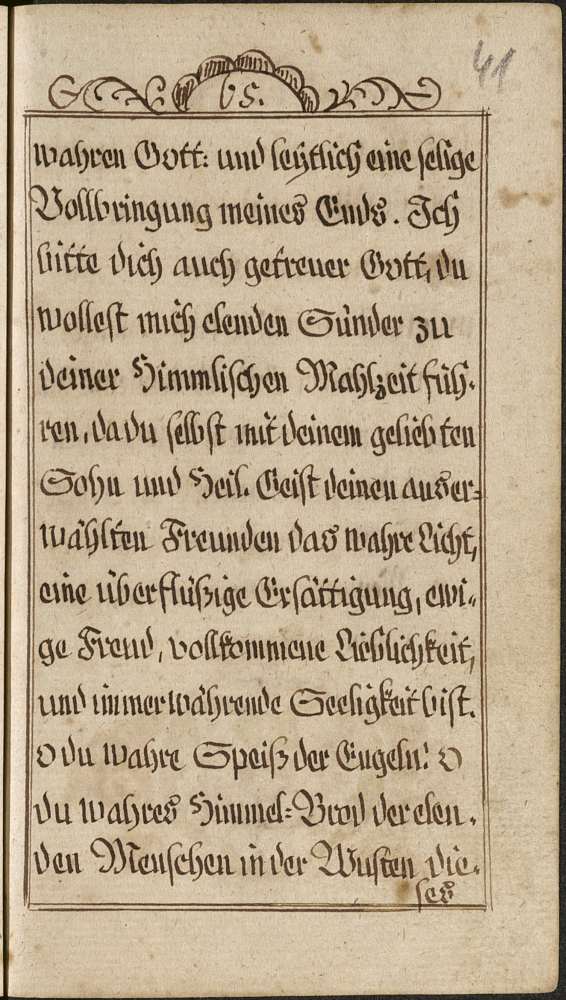 41
65.
wahren Gott: und letztlich eine selige
Vollbringung meines Ends. Ich
bitte dich auch getreuer Gott, du
wollest mich elenden Sünder zu
deiner Himmlischen Mahlzeit füh„
ren, da du selbst mit deinem geliebten
Sohn und Heil. Geist deinen auser=
wählten Freunden das wahre Licht,
eine überflüßige Ersättigung, ewi„
ge Freud, vollkommene Lieblichkeit,
und immerwährende Seeligkeit bist.
O du wahre Speiß der Engeln! O
du wahres Himmel=Brod der elen„
den Menschen in der Wüsten die„
ses